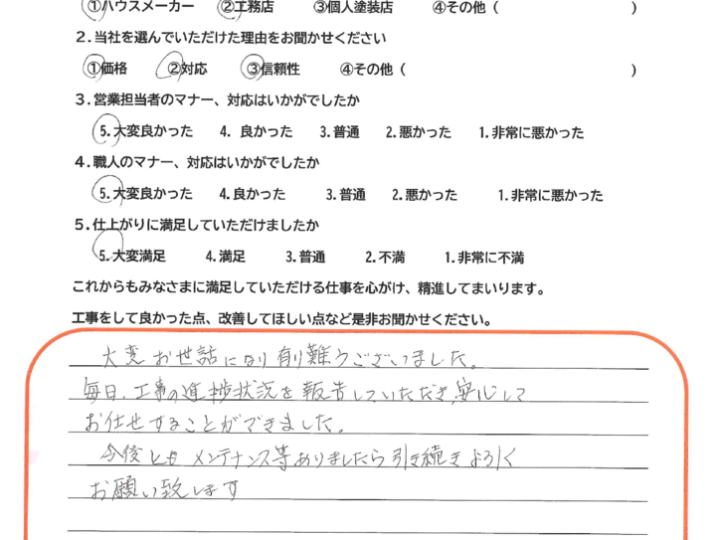 ①ハウスメーカー ②工務店 ③個人塗装店 ④その他（ ）
２.当社を選んでいただけた理由をお聞かせください
①価格 ②対応 ③信頼性 ④その他（ ）
３.営業担当者のマナー、対応はいかがでしたか
5.大変良かった 4. 良かった 3.普通 2.悪かった 1.非常に悪かった
４.職人のマナー、対応はいかがでしたか
5.大変良かった 4.良かった 3.普通 2.悪かった 1.非常に悪かった
５.仕上がりに満足していただけましたか
5.大変満足 4.満足 3.普通 2.不満 1.非常に不満
これからもみなさまに満足していただける仕事を心がけ、精進してまいります。
工事をして良かった点、改善してほしい点など是非お聞かせください。
大変お世話になり有難うございました。
毎日、工事の進捗状況を報告していただき、安心して
お任せすることができました。
今後ともメンテナンス等ありましたら引き続きよろしく
お願い致します